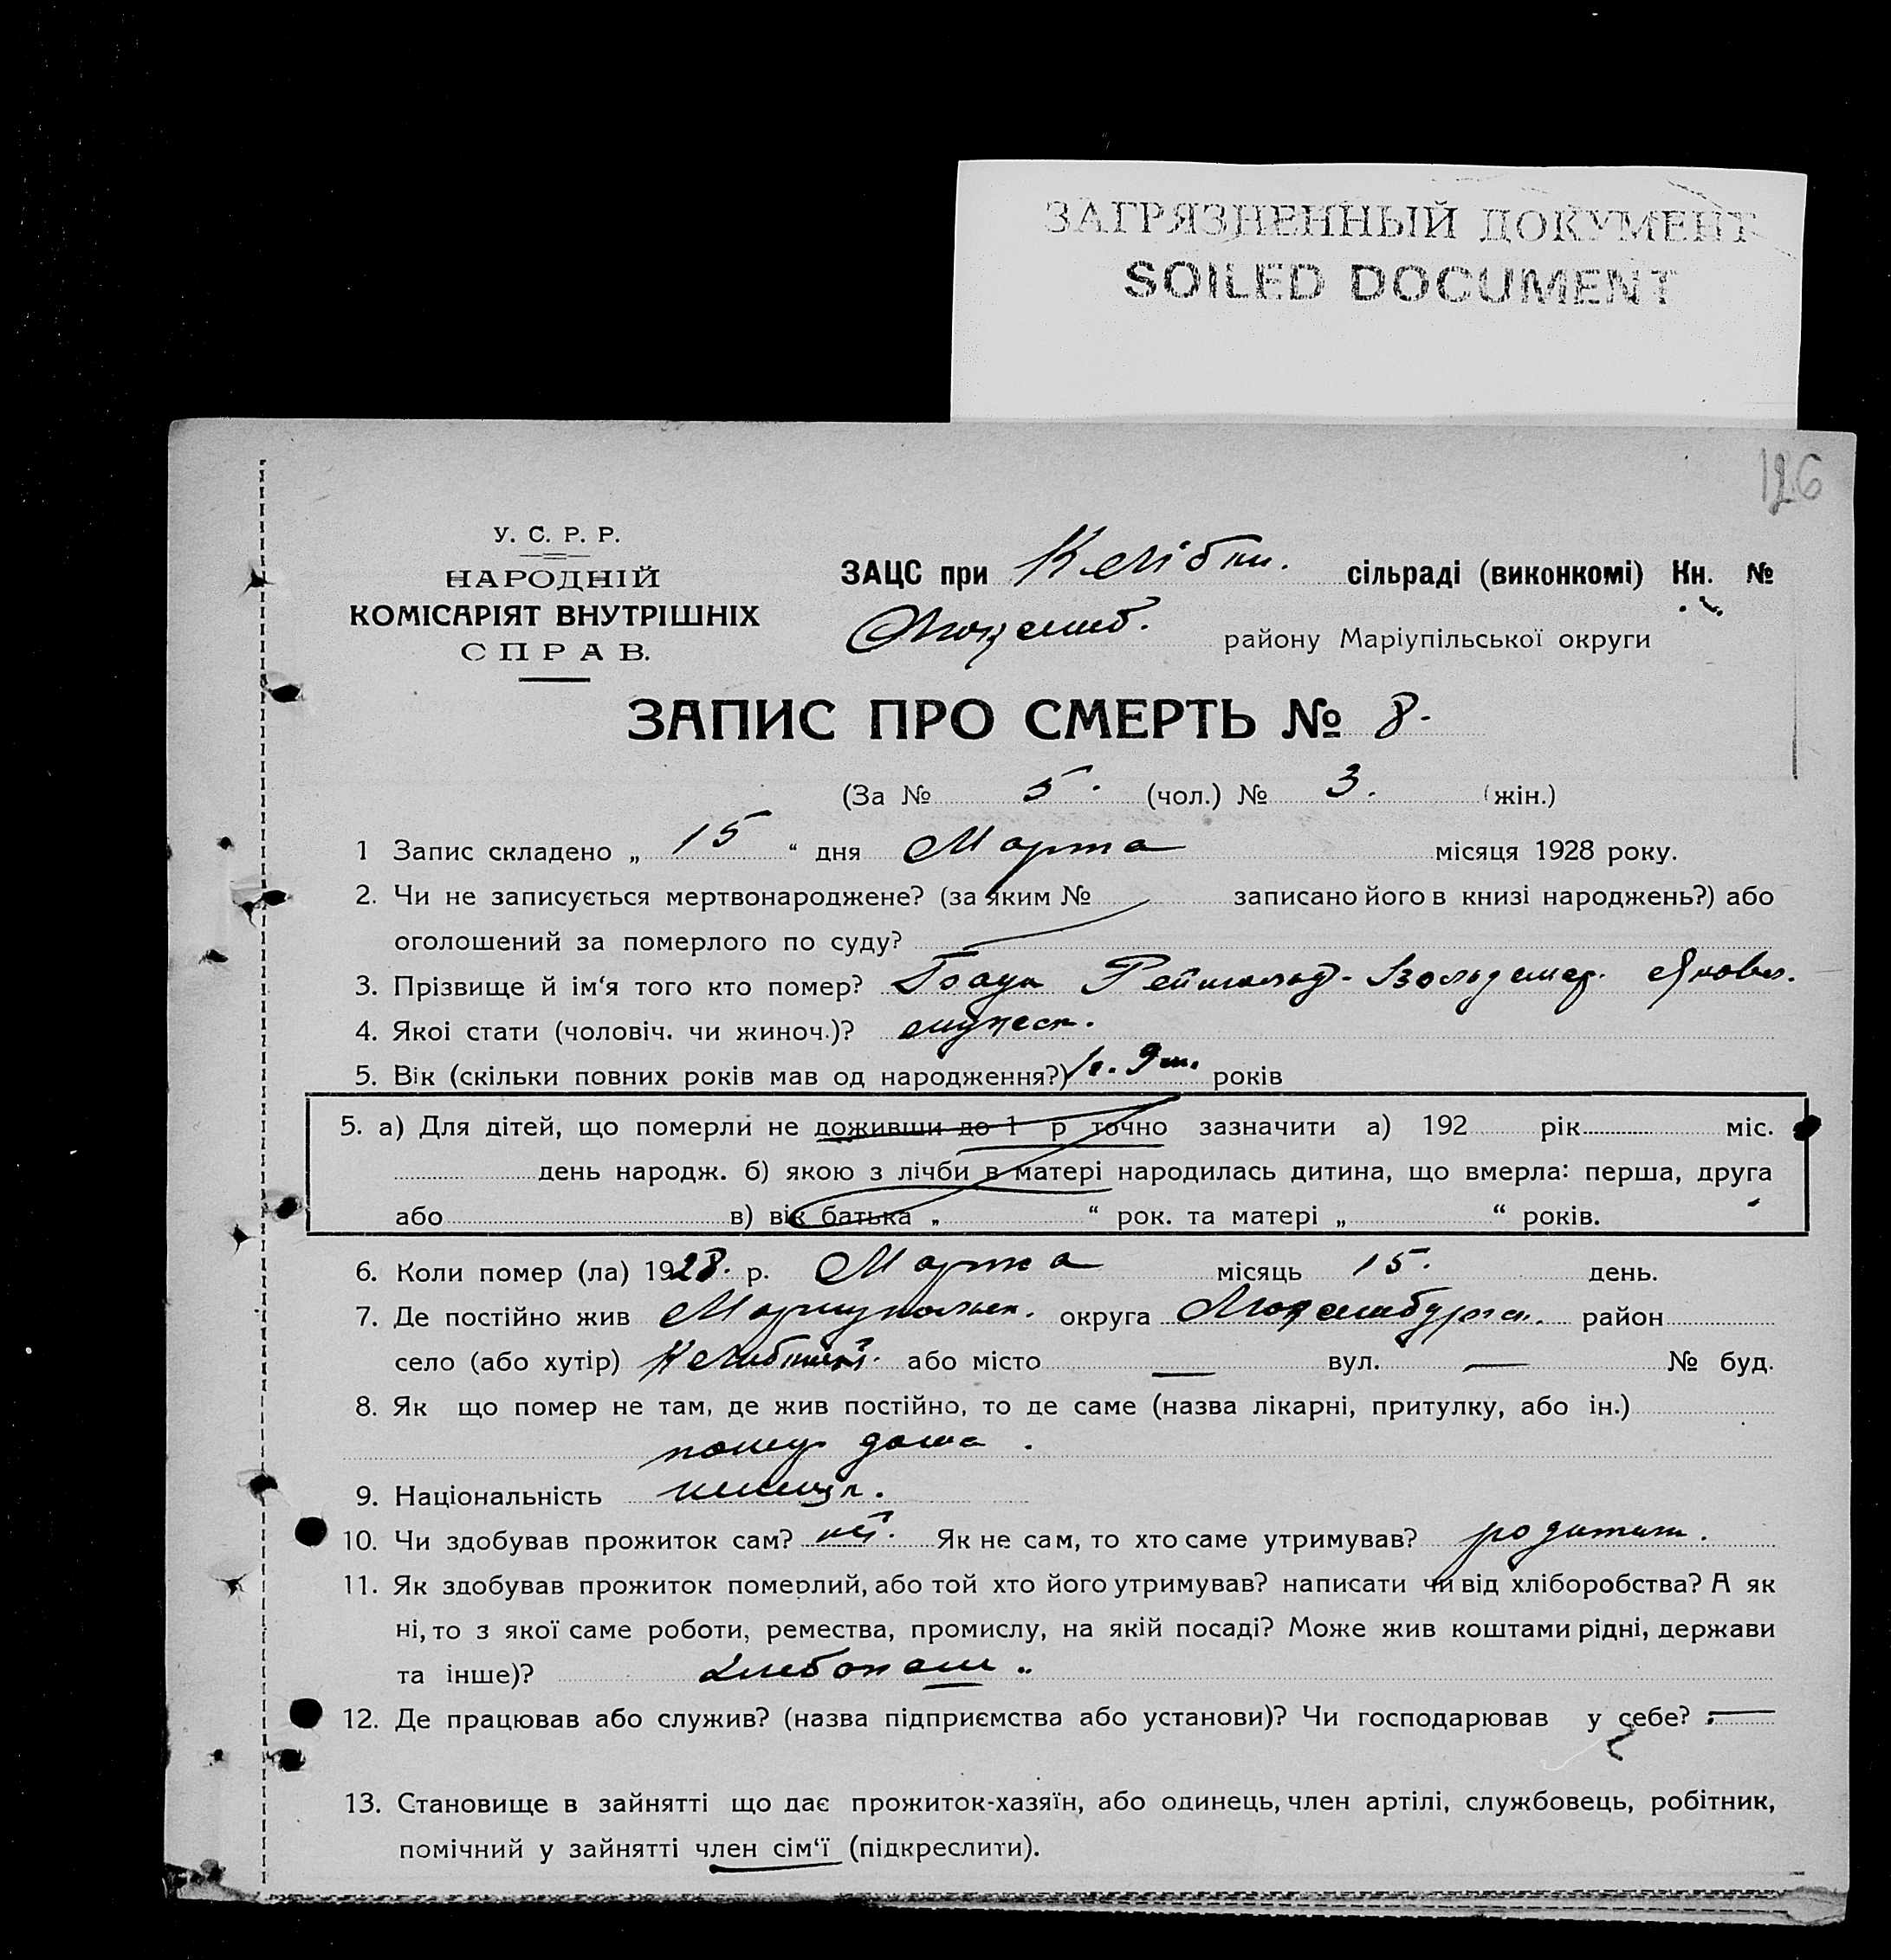 ЗАГРЯЗНЕННЫЙ ДОКУМЕНТ
SOILED DOCUMENT
126
У. С. Р. Р.
НАРОДНІЙ
КОМІСАРІЯТ ВНУТРІШНІХ
СПРАВ.
ЗАЦС при сільраді (виконкомі) Кн. №
району Маріупільської округи
ЗАПИС ПРО СМЕРТЬ № 8.
(За № 5. (чол.) № 3. (жін.)
1 Запис складено „ 15 “ дня Марта місяця 1928 року.
2. Чи не записується мертвонароджене? (за яким № записано його в книзі народжень?) або
оголошений за померлого по суду?
3. Прізвище й ім‘я того кто помер? Рейнгольд-Вольдемар. Яковл.
4. Якоі стати (чоловіч. чи жиноч.)? мужеск.
5. Вік (скільки повних років мав од народження?) 1г. 9м. років
5. а) Для дітей, що померли не доживши до 1 р точно зазначити а) 192 рік міс.
день народж. б) якою з лічби в матері народилась дитина, що вмерла: перша, друга
або в) вік батька „ “ рок. та матері „ “ років.
6. Коли помер (ла) 1928. р. Марта місяць 15. день.
7. Де постійно жив Мариупольск. округа Люксембургск. район
село (або хутір) або місто — вул. — № буд.
8. Як що помер не там, де жив постійно, то де саме (назва лікарні, притулку, або ін.)
помер дома.
9. Національність немецк.
10. Чи здобував прожиток сам? Як не сам, то хто саме утримував? родители.
11. Як здобував прожиток померлий, або той хто його утримував? написати чи від хліборобства? А як
ні, то з якої саме роботи, ремества, промислу, на якій посаді? Може жив коштами рідні, держави
та інше)? хлебопаш„
12. Де працював або служив? (назва підприємства або установи)? Чи господарював у себе? —
13. Становище в зайнятті що дає прожиток-хазяїн, або одинець, член артілі, службовець, робітник,
помічний у зайнятті член сім‘ї (підкреслити).